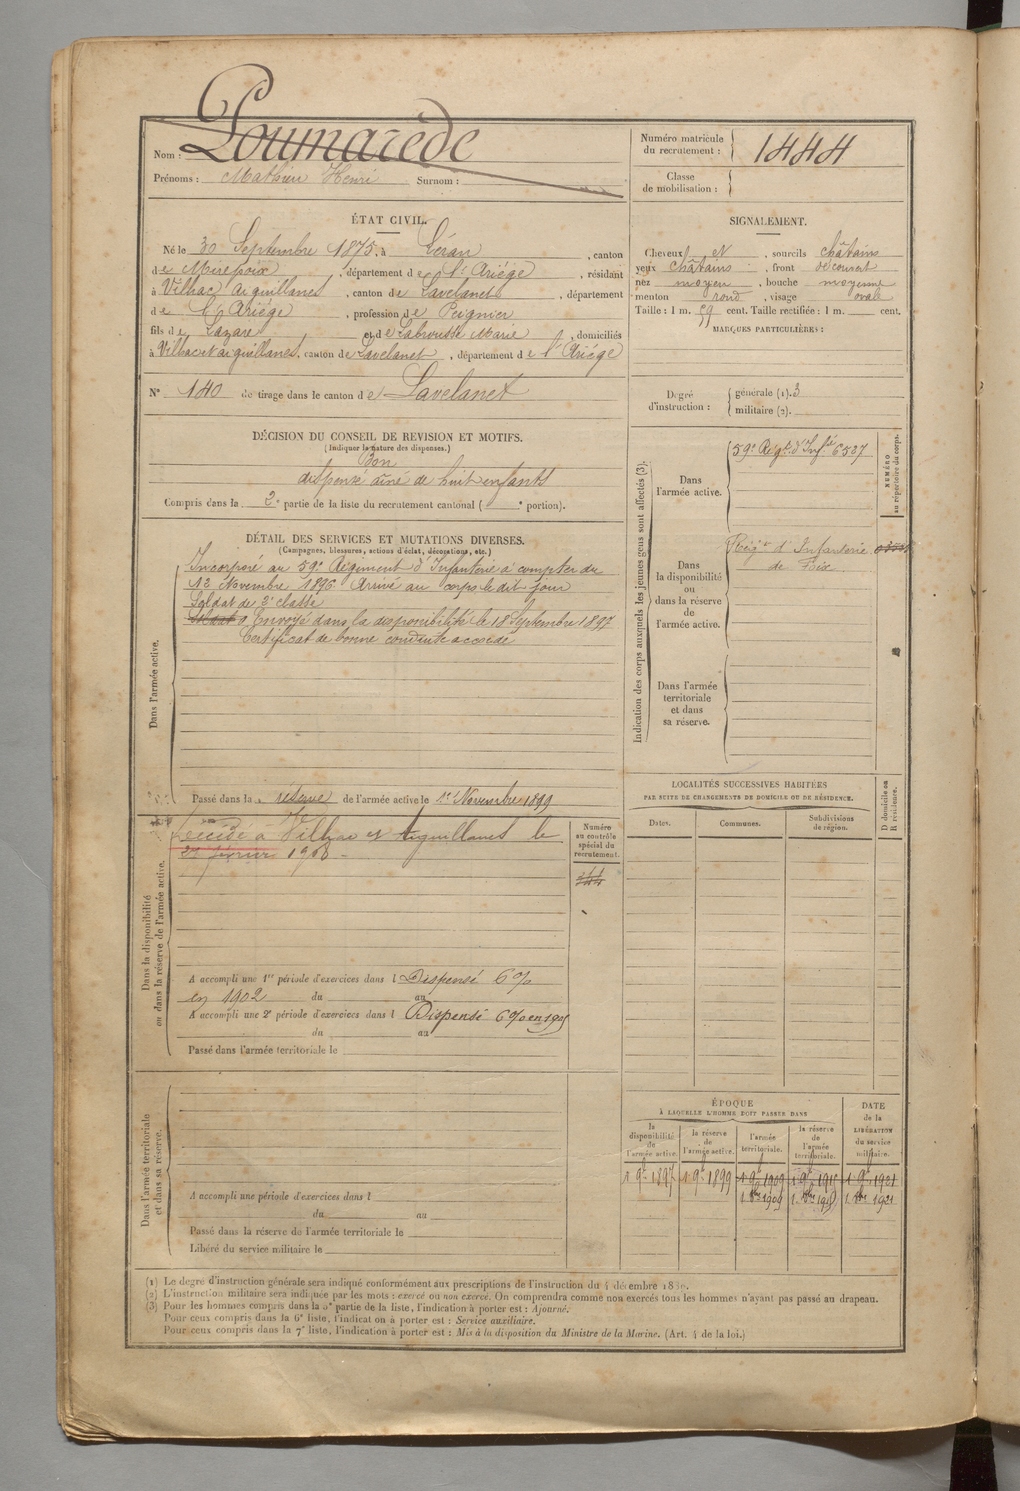 Nom : Poumarède
Prénoms : Mathieu Henri Surnom :
Numéro matricule du recrutement : 1444
Classe de mobilisation :
ÉTAT CIVIL.
Né le 30 Septembre 1875, à Léran, canton
de Mirepoix, département de l'Ariège, résidant
à Vilhac Aiguillanes, canton de Lavelanet, département
de l'Ariège, profession de Peignier
fils de Lazare et de Labrousse Marie, domiciliés
à Vilhac et aiguillanes, canton de Lavelanet, département de l'Ariège
N° 140 de tirage dans le canton de Lavelanet
SIGNALEMENT.
Cheveux et, sourcils châtains
yeux châtains, front découvert
nez moyen, bouche moyenne
menton rond, visage ovale
Taille : 1 m. 59 cent. Taille rectifiée : 1 m. cent.
MARQUES PARTICULIÈRES :
Degré d'instruction : générale (1). 3
militaire (2).
DÉCISION DU CONSEIL DE REVISION ET MOTIFS.
(Indiquer la nature des dispenses.)
Bon
dispensé aîné de huit enfants
Compris dans la 2e partie de la liste du recrutement cantonal ( e portion).
DÉTAIL DES SERVICES ET MUTATIONS DIVERSES.
(Campagnes, blessures, actions d'éclat, décorations, etc.)
Dans l'armée active.
Incorporé au 59e Régiment d'Infanterie à compter du
12 Novembre 1896. Arrivé au corps le dit jour
Soldat de 2e classe
Envoyé dans la disponibilité le 18 Septembre 1897
Certificat de bonne conduite accordé
Passé dans la réserve de l'armée active le 1er Novembre 1899
Indication des corps auxquels les jeunes gens sont affectés (3).
NUMÉRO au répertoire du corps.
Dans l'armée active.
59e Régt d'Infie 6537
Dans la disponibilité ou dans la réserve de l'armée active.
Régt d'Infanterie
de Foix
Dans l'armée territoriale et dans sa réserve.
Dans la disponibilité ou dans la réserve de l'armée active.
Décédé à Vilhac et Aiguillanes le
21 février 1908
Numéro au contrôle spécial du recrutement.
A accompli une 1re période d'exercices dans l Dispensé 6%
en 1902 du au
A accompli une 2e période d'exercices dans l Dispensé 6% en 1905
du au
Passé dans l'armée territoriale le
LOCALITÉS SUCCESSIVES HABITÉES
PAR SUITE DE CHANGEMENTS DE DOMICILE OU DE RÉSIDENCE.
D domicile ou R résidence.
Dates. Communes. Subdivisions de région.
Dans l'armée territoriale et dans sa réserve.
A accompli une période d'exercices dans l
du au
Passé dans la réserve de l'armée territoriale le
Libéré du service militaire le
ÉPOQUE
À LAQUELLE L'HOMME DOIT PASSER DANS
DATE de la LIBÉRATION du service militaire.
la disponibilité de l'armée active. la réserve de l'armée active. l'armée territoriale. la réserve de l'armée territoriale.
1 9e 1897 1 9e 1899 1 9e 1909 1 9e 1915 1 9e 1921
1. 8bre 1909 1. 8bre 1915 1. 8bre 1921
(1) Le degré d'instruction générale sera indiqué conformément aux prescriptions de l'instruction du 4 décembre 1889.
(2) L'instruction militaire sera indiquée par les mots : exercé ou non exercé. On comprendra comme non exercés tous les hommes n'ayant pas passé au drapeau.
(3) Pour les hommes compris dans la 5e partie de la liste, l'indication à porter est : Ajourné.
Pour ceux compris dans la 6e liste, l'indication à porter est : Service auxiliaire.
Pour ceux compris dans la 7e liste, l'indication à porter est : Mis à la disposition du Ministre de la Marine. (Art. 4 de la loi.)